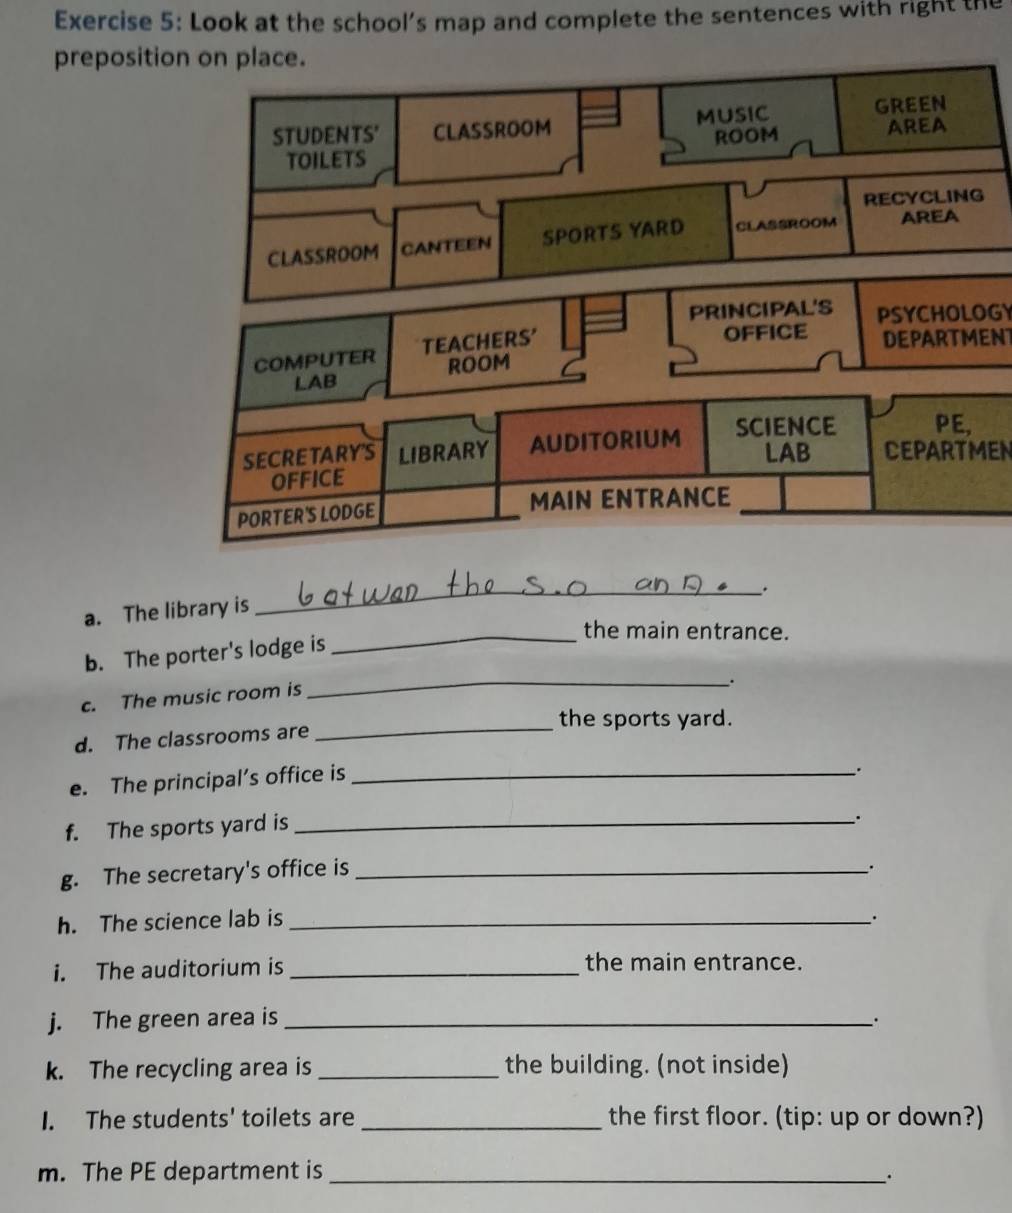 Exercise 5: Look at the school's map and complete the sentences with right the
preposition on place.
STUDENTS' TOILETS
CLASSROOM
MUSIC ROOM
GREEN AREA
CLASSROOM
CANTEEN
SPORTS YARD
CLASSROOM
RECYCLING AREA
COMPUTER LAB
TEACHERS' ROOM
PRINCIPAL'S OFFICE
PSYCHOLOGY DEPARTMENT
SECRETARY'S OFFICE
LIBRARY
AUDITORIUM
SCIENCE LAB
PE, CEPARTMEN
PORTER'S LODGE
MAIN ENTRANCE
a. The library is botwan the s.o an A .
b. The porter's lodge is ____ the main entrance.
c. The music room is ____.
d. The classrooms are ____ the sports yard.
e. The principal's office is ____.
f. The sports yard is ____.
g. The secretary's office is ____.
h. The science lab is ____.
i. The auditorium is ____ the main entrance.
j. The green area is ____.
k. The recycling area is ____ the building. (not inside)
l. The students' toilets are ____ the first floor. (tip: up or down?)
m. The PE department is ____.